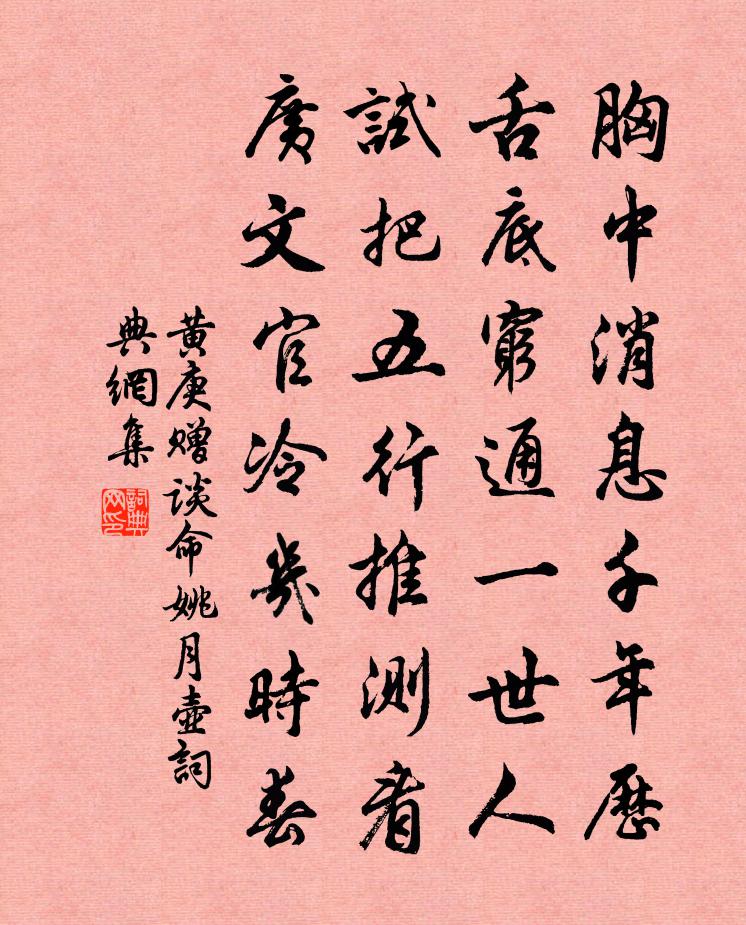 胸中消息千年曆
舌底窮通一世人
試把五行推測看
廣文官冷幾時春
黄庚赠谈命姚月壺詞
典網集
詞典網印